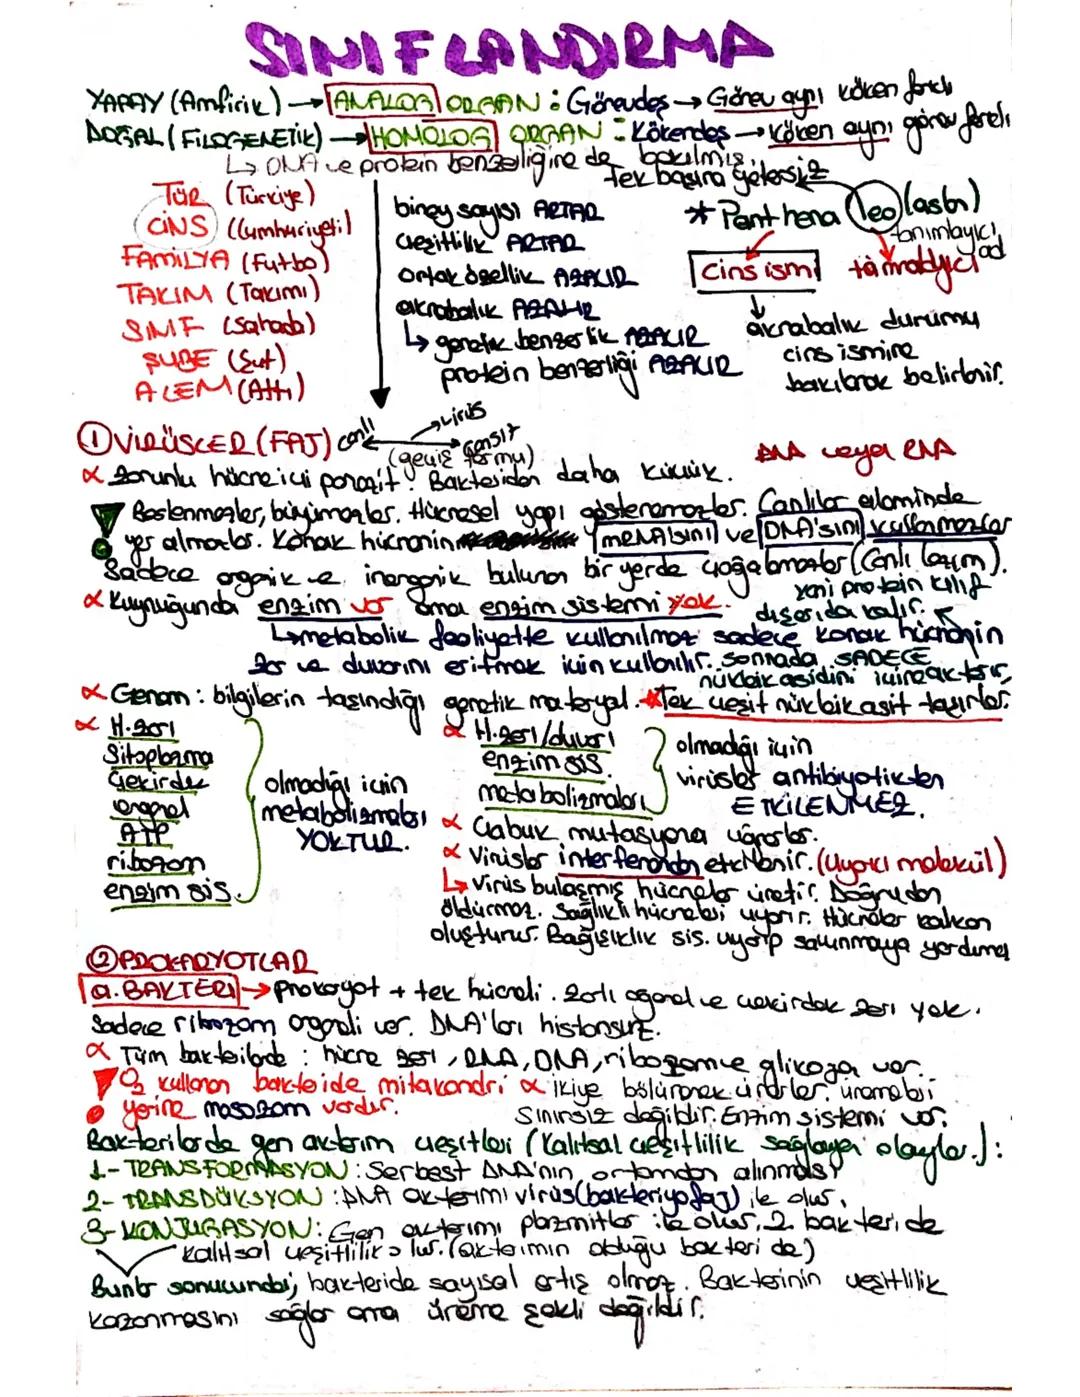 SINIFLANDIRMA
YAPAY (Amfirik) → ANALOG ORGAN : Görevdeş → Görev aynı köken farklı
DOĞAL (FiLOGENETİK) → HOMOLOG ORGAN : Kökendeş → köken aynı görev farklı
↳ DNA ve protein benzerliğine de bakılmış.
tek başına yetersiz
TÜR (Türkiye)
CİNS (Cumhuriyeti)
FAMİLYA (Futbol)
TAKIM (Takımı)
SINIF (Sahada)
ŞUBE (Şut)
ALEM (Attı)
birey sayısı ARTAR
çeşitlilik ARTAR
ortak özellik AZALIR
akrabalık AZALIR
↳ genetik benzerlik AZALIR
protein benzerliği AZALIR
* Panthena leo (aslan)
tanımlayıcı ad
cins ismi tamamlayıcı
↓
akrabalık durumu
cins ismine
bakılarak belirlenir.
① VİRÜSLER (FAJ) canlı ← → cansız
→ virüs
(geçiş formu)
DNA veya RNA
∝ Zorunlu hücre içi parazit. Bakteriden daha küçük.
! Beslenmezler, büyümezler. Hücresel yapı göstermezler. Canlılar aleminde
yer almazlar. Konak hücrenin mRNA'sını ve DNA'sını kullanmazlar
Sadece organik ve inorganik bulunan bir yerde çoğalamazlar (Canlı lazım).
∝ Kuyruğunda enzim var ama enzim sistemi yok.
yani protein kılıf
dışarıda kalır.
↳ metabolik faaliyette kullanılmaz sadece konak hücrenin
zar ve duvarını eritmek için kullanılır. sonrada SADECE
nükleik asidini içine aktarır,
∝ Genom : bilgilerin taşındığı genetik materyal. * Tek çeşit nükleik asit taşırlar.
∝ H. zarı
Sitoplazma
Çekirdek
organel
ATP
ribozom
enzim sis.
olmadığı için
metabolizmaları
YOKTUR.
∝ H. zarı/duvarı
enzim sis.
metabolizmaları
olmadığı için
virüsler antibiyotikten
ETKİLENMEZ.
∝ Çabuk mutasyona uğrarlar.
∝ Virüsler interferondan etkilenir. (Uyarıcı molekül)
↳ Virüs bulaşmış hücreler üretir. Doğrudan
öldürmez. Sağlıklı hücreleri uyarır. Hücreler kalkan
oluşturur. Bağışıklık sis. uyarıp savunmaya yardımcı
② PROKARYOTLAR
a. BAKTERİ → prokaryot + tek hücreli. Zarlı organel ve çekirdek zarı yok.
Sadece ribozom organeli var. DNA'ları histonsuz.
∝ Tüm bakterilerde : hücre zarı, RNA, DNA, ribozom ve glikoz var.
! O₂ kullanan bakteride mitokondri
yerine mosozom vardır.
∝ ikiye bölünerek ürerler. üremeleri
sınırsız değildir. Enzim sistemi var.
Bakterilerde gen aktarım çeşitleri (Kalıtsal çeşitlilik sağlayan olaylar.) :
1- TRANSFORMASYON : Serbest DNA'nın ortamdan alınması
2- TRANSDÜKSİYON : DNA aktarımı virüs (bakteriyofaj) ile olur.
3- KONJUGASYON : Gen aktarımı plazmitler ile olur. 2. bakteride
kalıtsal çeşitlilik olur. (aktarımın olduğu bakteride)
Bunlar sonucunda; bakteride sayısal artış olmaz. Bakterinin çeşitlilik
kazanmasını sağlar ama üreme şekli değildir.